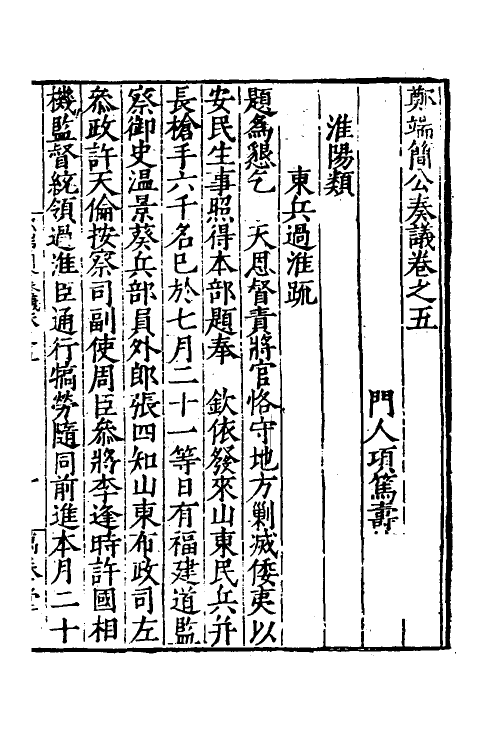 鄭端簡公奏議卷之五
門人項篤壽
淮陽類
東兵過淮䟽
題爲懇乞　天恩督責將官恪守地方剿滅倭夷以
安民生事照得本部題奉　欽依發來山東民兵并
長槍手六千名已於七月二十一等日有福建道監
察御史温景葵兵部員外郎張四知山東布政司左
叅政許天倫按察司副使周臣叅將李逢時許國相
機監督統領過淮臣通行犒勞隨同前進本月二十